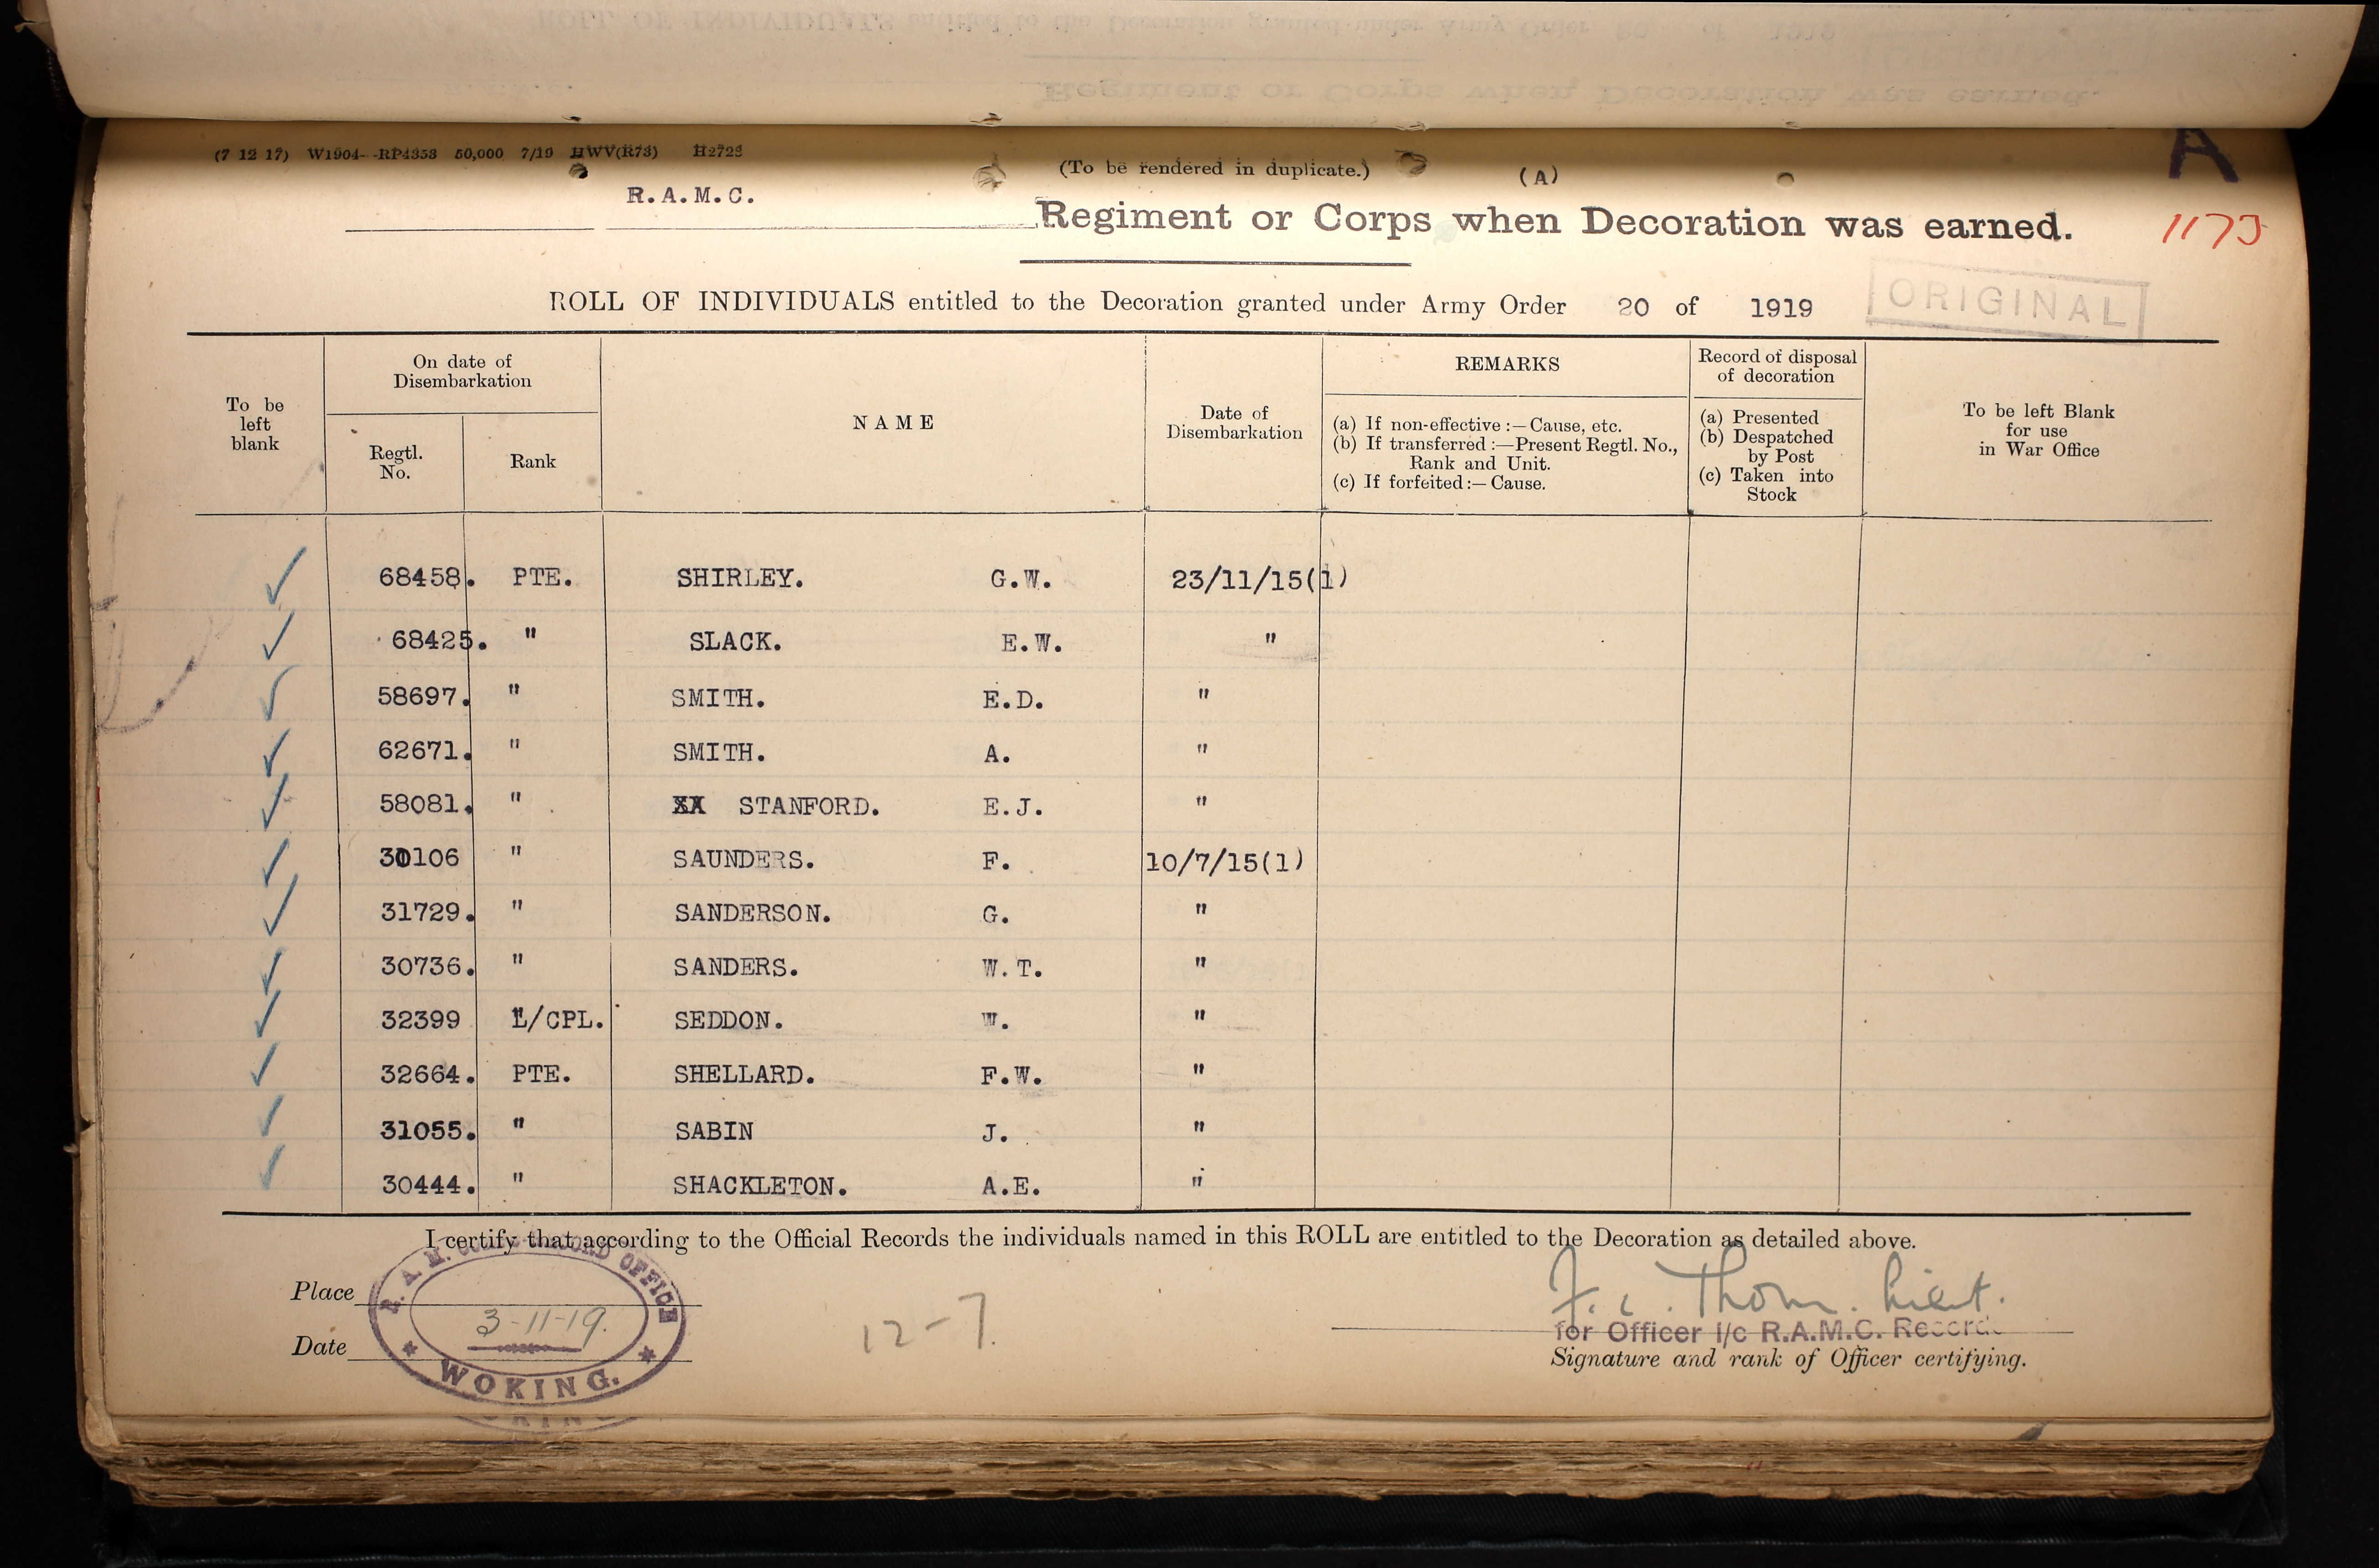 (7 12 17) W1904—RP4353 50,000 7/19 HWV(R73) H2723
(To be rendered in duplicate.) (A) A
R.A.M.C. Regiment or Corps when Decoration was earned.
ORIGINAL
ROLL OF INDIVIDUALS entitled to the Decoration granted under Army Order 20 of 1919
To be left blank
On date of Disembarkation
Regtl. No.
Rank
NAME
Date of Disembarkation
REMARKS
(a) If non-effective :— Cause, etc.
(b) If transferred :—Present Regtl. No., Rank and Unit.
(c) If forfeited :— Cause.
Record of disposal of decoration
(a) Presented
(b) Despatched by Post
(c) Taken into Stock
To be left Blank for use in War Office
68458. PTE. SHIRLEY. G.W. 23/11/15(1)
68425. " SLACK. E.W. "
58697. " SMITH. E.D. "
62671. " SMITH. A. "
58081. " STANFORD. E.J. "
30106 " SAUNDERS. F. 10/7/15(1)
31729. " SANDERSON. G. "
30736. " SANDERS. W.T. "
32399 L/CPL. SEDDON. W. "
32664. PTE. SHELLARD. F.W. "
31055. " SABIN J. "
30444. " SHACKLETON. A.E. "
I certify that according to the Official Records the individuals named in this ROLL are entitled to the Decoration as detailed above.
Place
Date
R. A. M. CORPS RECORD OFFICE
3-11-19.
WOKING.
12-7.
Thom. Lieut.
for Officer i/c R.A.M.C. Records
Signature and rank of Officer certifying.